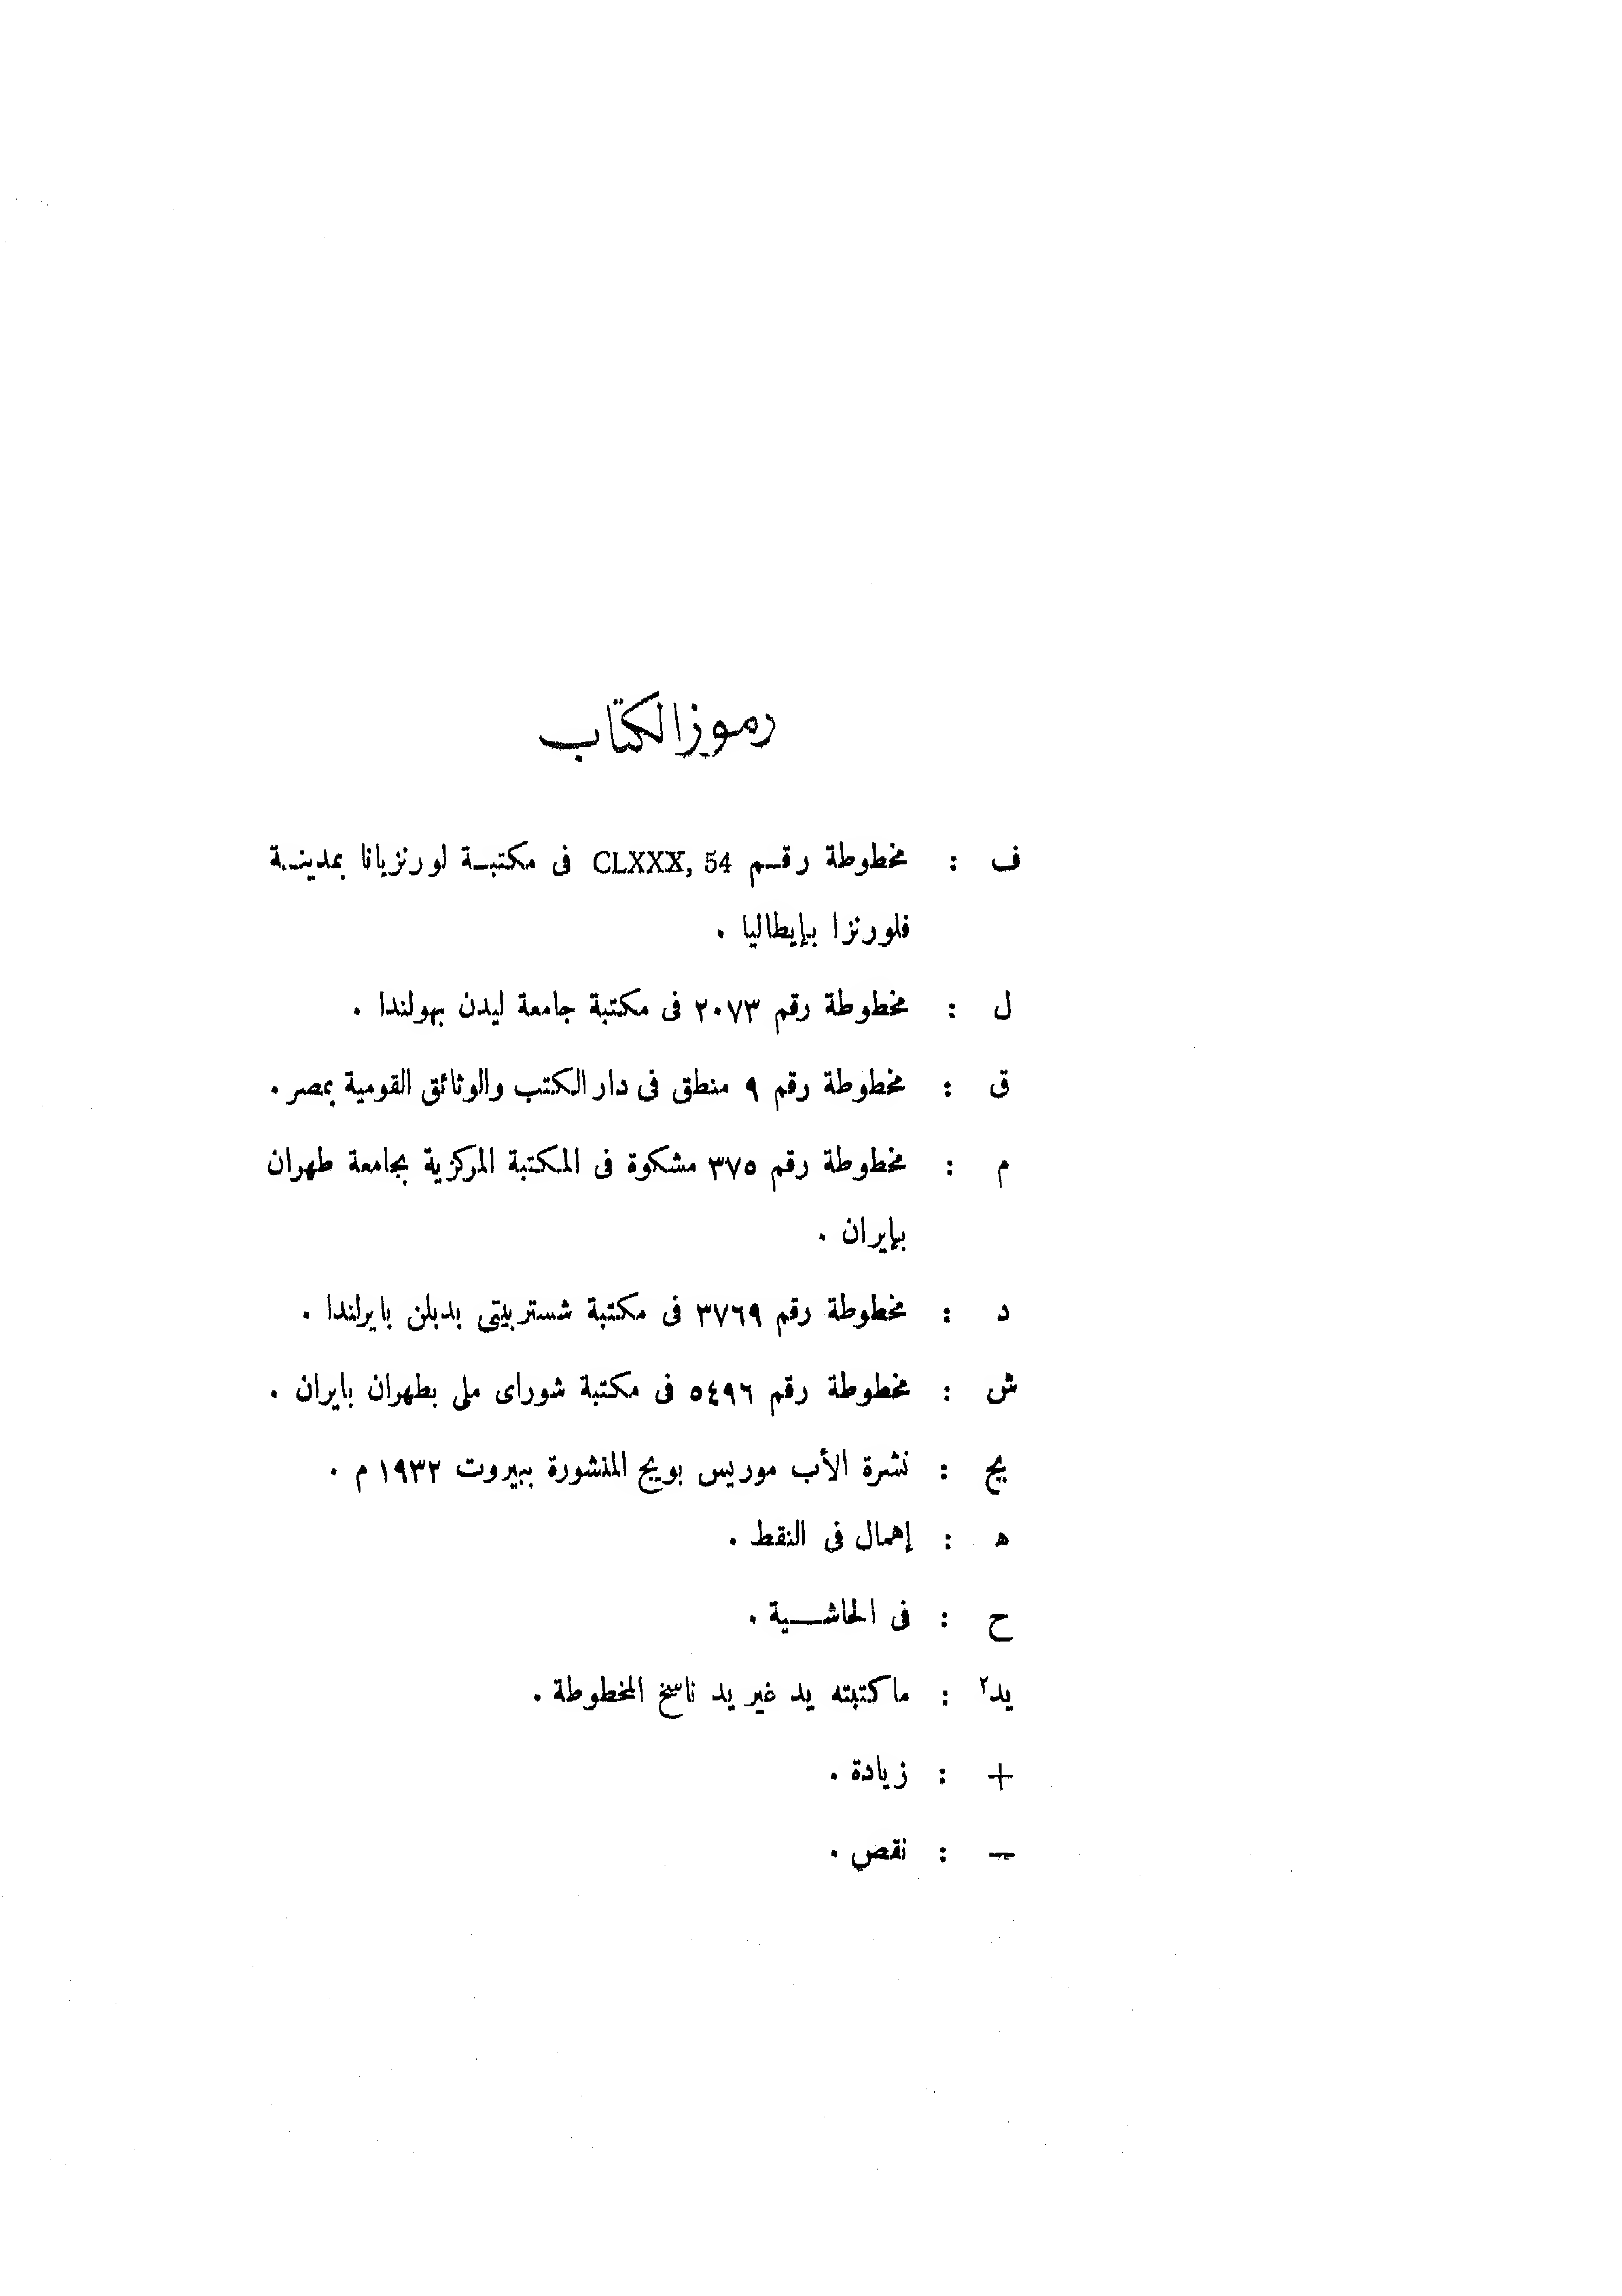 رموز الكتاب
ف : مخطوطة رقـم CLXXX, 54 فى مكتبـة لورنزيانا بمدينـة
فلورنزا بإيطاليا .
ل : مخطوطة رقم ٢٠٧٣ فى مكتبة جامعة ليدن بهولندا .
ق : مخطوطة رقم ٩ منطق فى دار الكتب والوثائق القومية بمصر .
م : مخطوطة رقم ٣٧٥ مشكوة فى المكتبة المركزية بجامعة طهران
بإيران .
د : مخطوطة رقم ٣٧٦٩ فى مكتبة شستربيتى بدبلن بايرلندا .
ش : مخطوطة رقم ٥٤٩٦ فى مكتبة شوراى ملى بطهران بايران .
يج : نشرة الأب موريس بويج المنشورة ببيروت ١٩٣٢ م .
ه : إهمال فى النقط .
ح : فى الحاشـــية .
يد٢ : ما كتبته يد غير يد ناسخ المخطوطة .
+ : زيادة .
— : نقص .